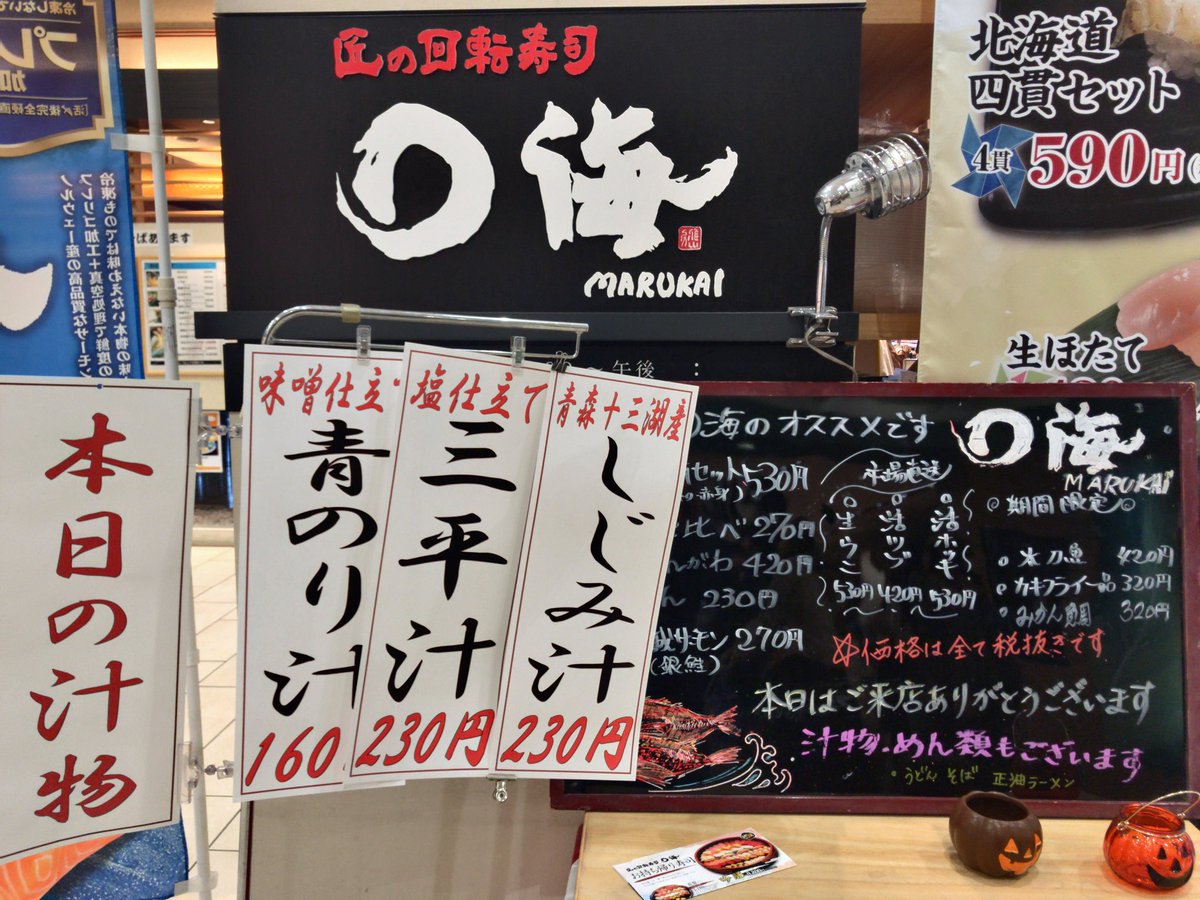 匠の回転寿司
○海
MARUKAI
北海道
四貫セット
4貫 590円
生ほたて
冷凍ものでは味わえない本物の味
プレリゴ加工+真空処理で鮮度の
ノルウェー産の高品質なサーモン
本日の汁物
味噌仕立
青のり汁
160
塩仕立て
三平汁
230円
青森十三湖産
しじみ汁
230円
〜午後
海のオススメです
セット530円
赤身)
比べ 270円
んがわ 420円
230円
サーモン 270円
(銀鮭)
市場直送
生ウニ 530円
活ツブ 420円
活ホッキ 530円
○海
MARUKAI
期間限定
太刀魚 420円
カキフライ一品 320円
みかん鯛 320円
価格は全て税抜きです
本日はご来店ありがとうございます
汁物・めん類もございます
うどん そば 正油ラーメン
匠の回転寿司 ○海
お持ち帰り寿司